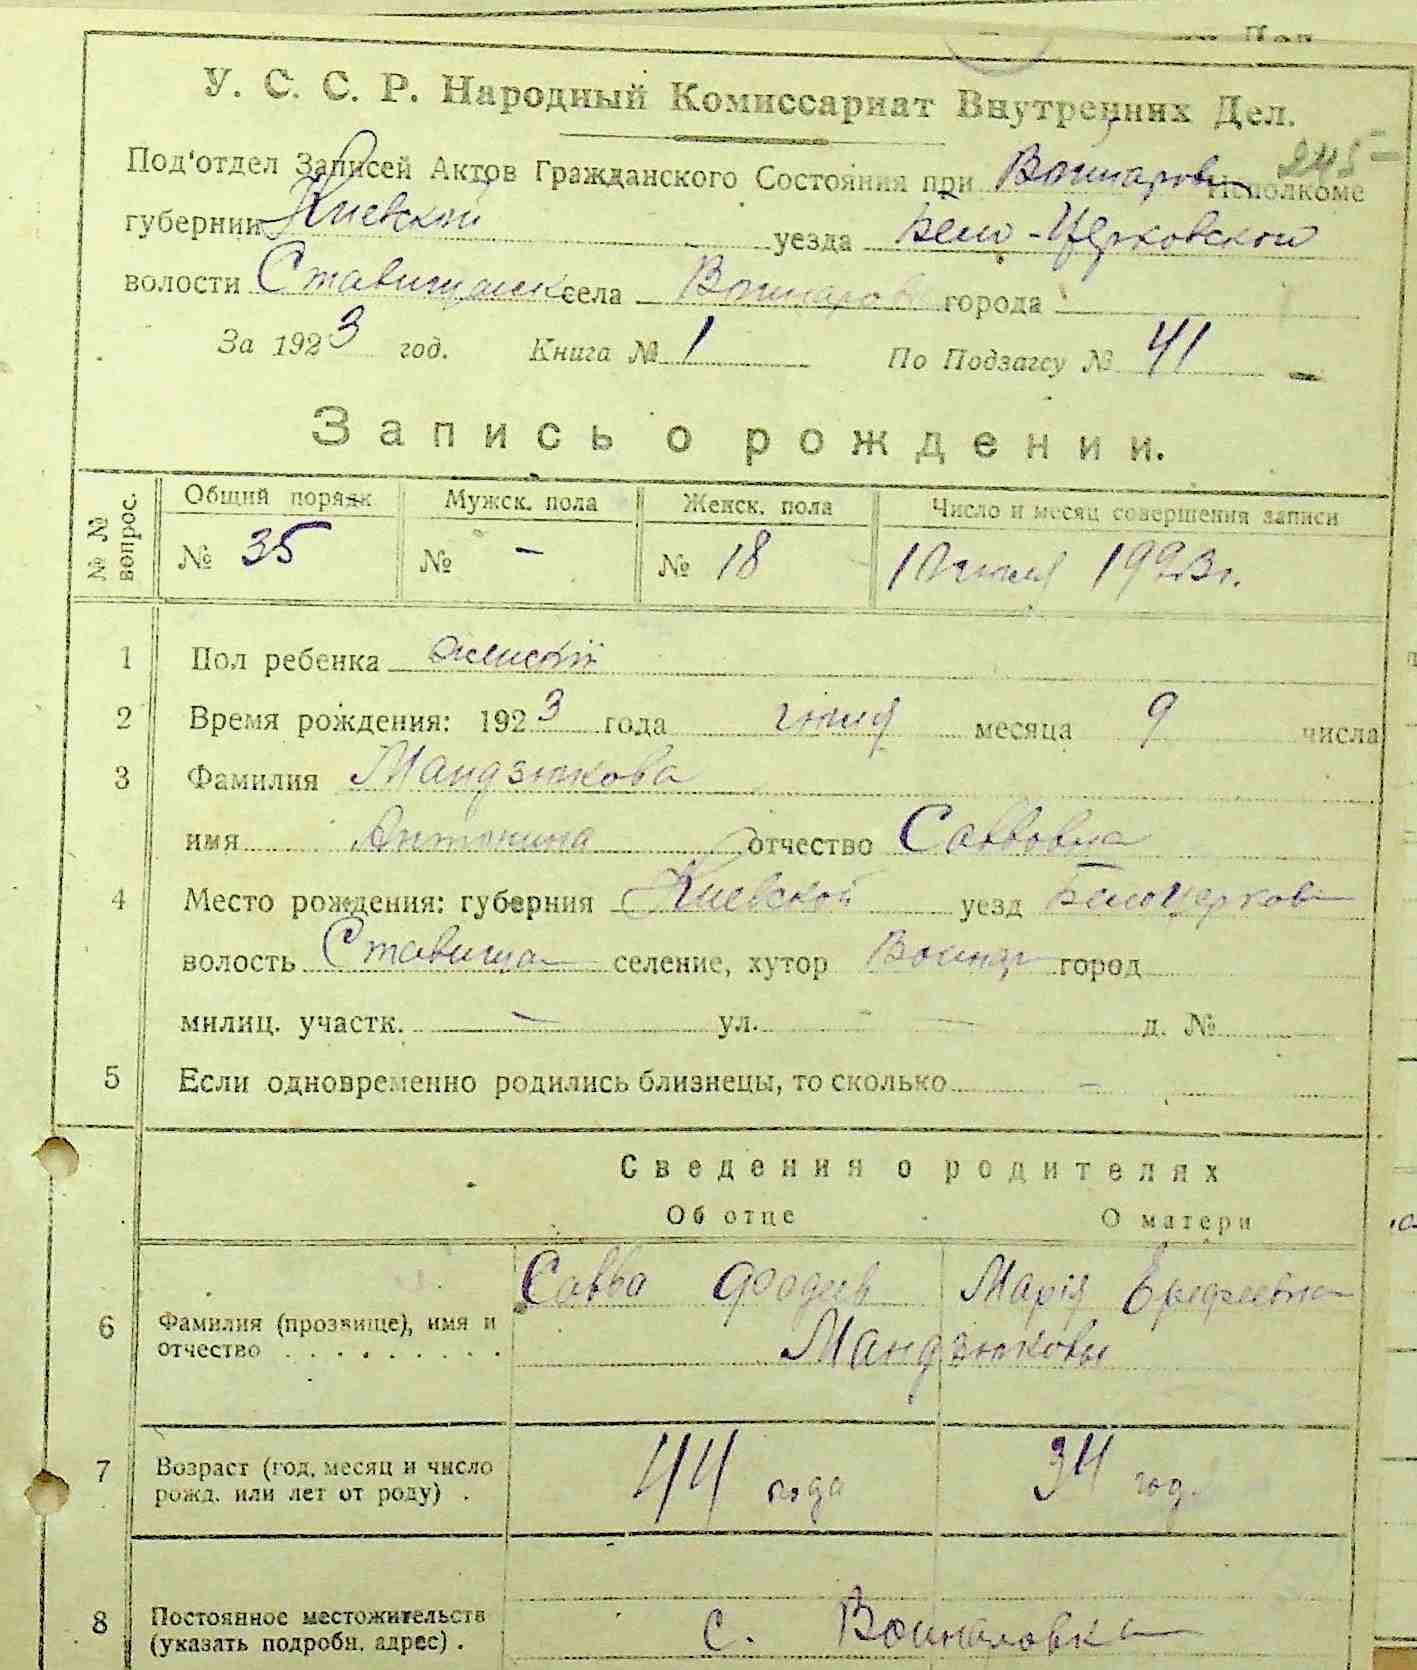 У. С. С. Р. Народный Комиссариат Внутренних Дел.
245
Под'отдел Записей Актов Гражданского Состояния при Войнаров Исполкоме
губернии Киевской уезда Бело-Церковской
волости Ставищанск села Войнаров города
За 1923 год. Книга № 1 По Подзагсу № 41
Запись о рождении.
№ № вопрос.
Общий порядк Мужск. пола Женск. пола Число и месяц совершения записи
№ 35 № - № 18 10 июля 1923 г.
1 Пол ребенка женский
2 Время рождения: 1923 года июля месяца 9 числа
3 Фамилия Мандзюкова
имя Антонина отчество Саввовна
4 Место рождения: губерния Киевской уезд Белоцерков
волость Ставища селение, хутор Войнар город
милиц. участк. - ул. - д. №
5 Если одновременно родились близнецы, то сколько -
Сведения о родителях
Об отце О матери
6 Фамилия (прозвище), имя и отчество Савва Фадеев Марія
Мандзюковы
7 Возраст (год, месяц и число рожд. или лет от роду) . 44 года 34 год.
8 Постоянное местожительств (указать подробн. адрес) . с. Войнаровка